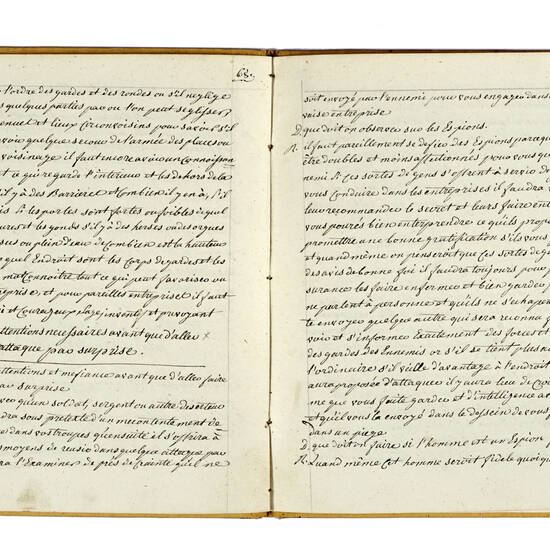 68.
l'ordre des gardes et des rondes ou s'il neglige
quelques parties par ou l'on peut se glisser
et lieux circonvoisins pour savoir s'il
quelque secour de l'armée des places ou
voisinage il faut encore avoir un Connoissan
ce qui regarde l'interieur et les dehors de la
s'il y à des Barrieres et Combien il y en à, s'il
si les portes sont fortes ou foibles de quel
et les gonds s'il y à des herses ou des orgues
ou plein d'eau de Combien est la hauteur
quel Endroit sont les Corps de gardes et les
Connoitre tout ce qui peut favoriser ou
et pour pareilles entreprises il faut
et Courageux, sage, inventif et prevoyant
attentions necessaires avant que d'aller
attaque par surprise.
attentions et mefiance avant que d'aller faire
par surprise
qu'un soldat, sergent ou autre deserteur
sous pretexte d'un mecontentement de
dans vos troupes qu'ensuite il s'offrira à
moyens de reusir dans quelque attaque par
l'Examiner de près de Crainte qu'il ne
soit envoyé par l'ennemi pour vous engager dans
vaise entreprise
D. que doit on observer sur les Espions.
R. il faut pareillement se defier des Espions parce qu
être doubles et moins affectionnés pour vous que
nemi Si ces sortes de gens s'offrent à servir de
vous Conduire dans les entreprises il faudra
leur recommander le secret et leurs faire ent
vous pourés bien entreprendre ce qu'ils propo
promettre une bonne gratification s'ils vous
et quand même on penseroit que ces sortes de ge
des avis de bonne foi il faudra toujours pour
surance les faire enfermer et bien garder
ne parlent à personne et qu'ils ne s'echape
te envoyer quelque autre qui sera reconnu
voir et s'informer secretement des forces et
des gardes des Ennemis or s'il se tient plus
l'ordinaire s'il veille d'avantage à l'endroit
aura proposé d'attaquer il y aura lieu de Cro
me que vous faite garder est d'intelligence a
et qu'il vous la envoyé dans le dessein de vous
dans un piege
D. que doit on faire si l'homme est un Espion
R. Quand même cet homme seroit fidele quoique